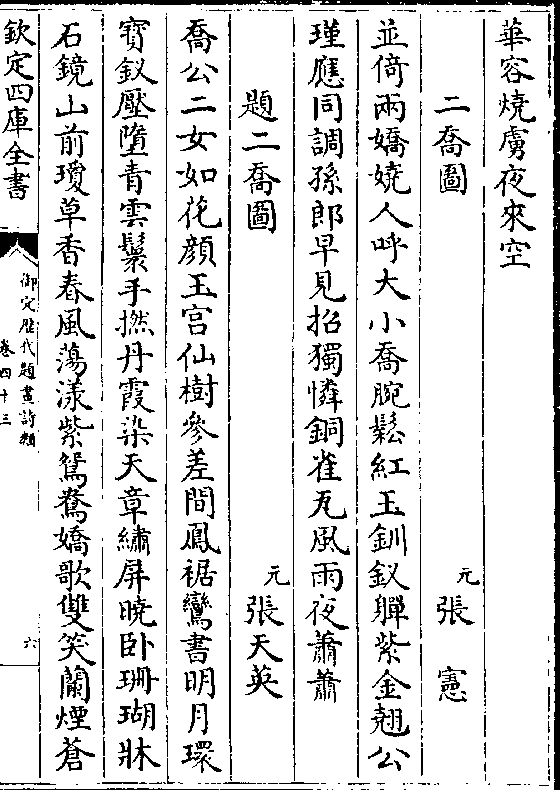 華容燒虜夜來空
二喬圖
元張憲
並倚兩嬌嬈人呼大小喬腕鬆紅玉釧釵嚲紫金翹公
瑾應同調孫郎早見招獨憐銅雀瓦風雨夜蕭蕭
題二喬圖
元張天英
喬公二女如花顔玉宫仙樹參差間鳳裾鸞書明月環
寶釵壓墮青雲鬟手撚丹霞染天章繡屏曉卧珊瑚牀
石鏡山前瓊草香春風蕩漾紫鴛鴦嬌歌雙笑蘭煙蒼
欽定四庫全書
御定歷代題畫詩類
卷四十三
六